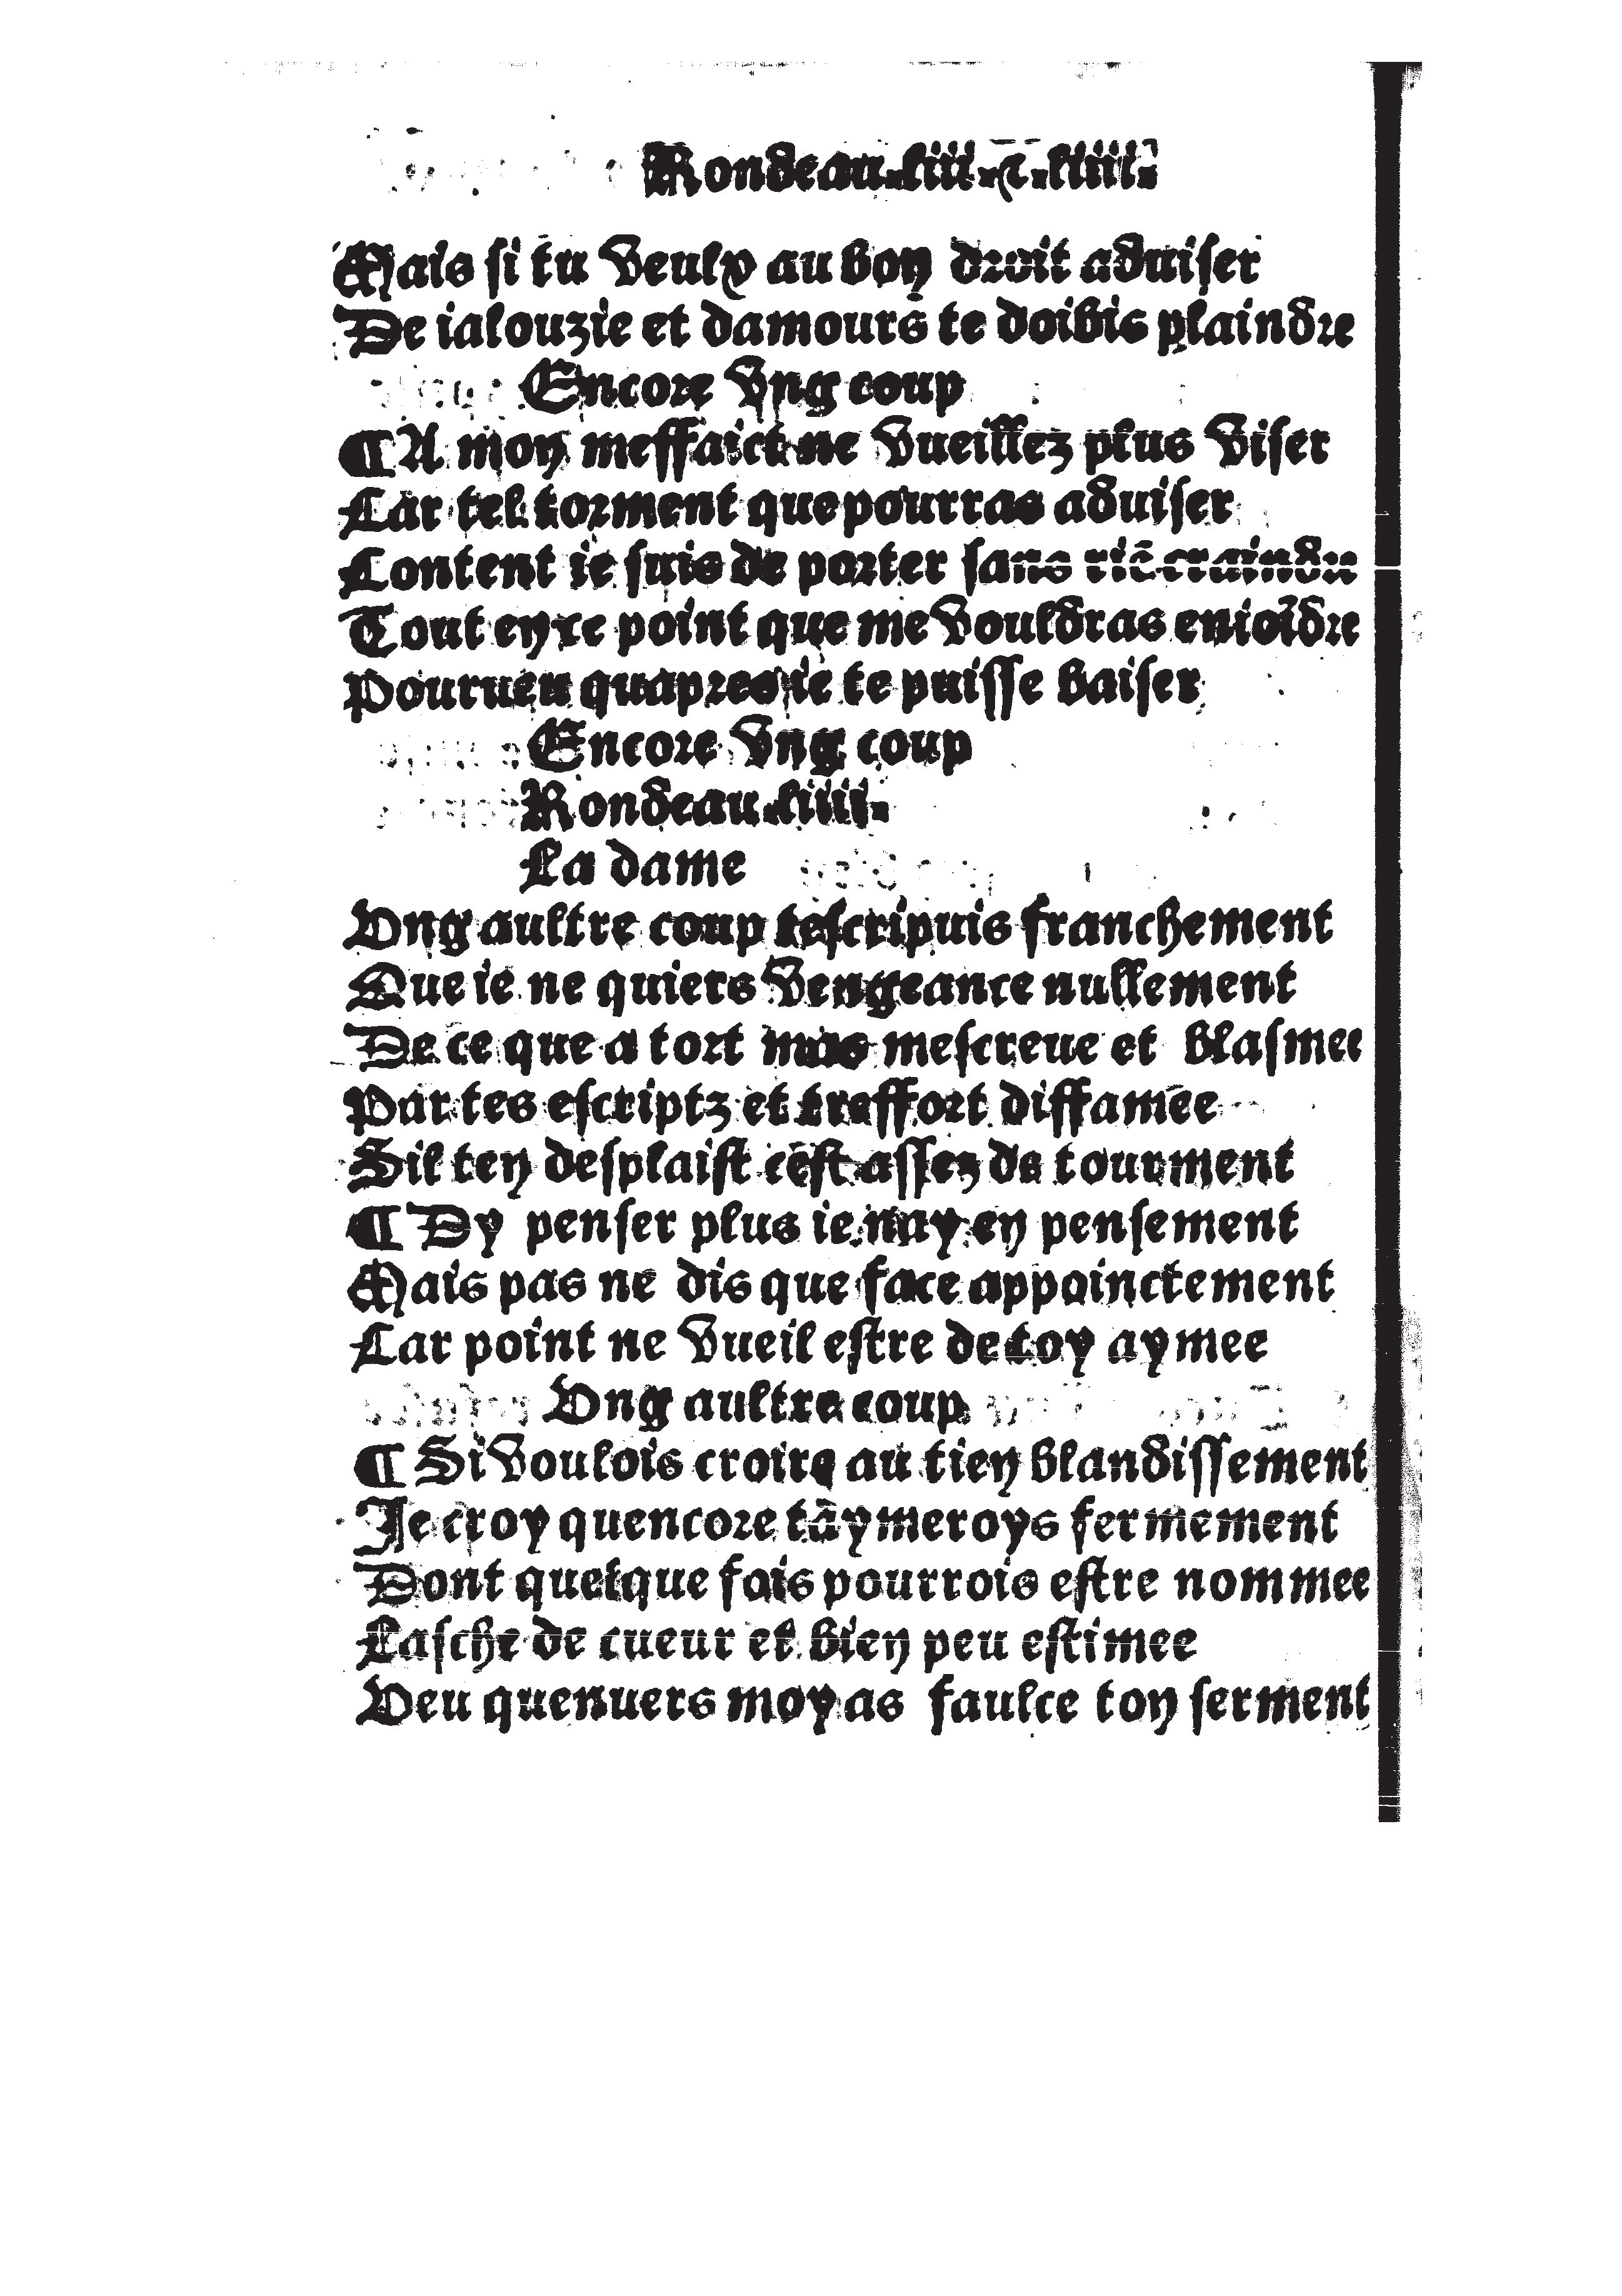 Rondeau.liii.⁊.liiii.
Mais si tu veulx au bon droit aduiser
De ialouzie et damours te doibis plaindre
Encore vng coup
¶ A mon meffaict ne vueillez plus viser
Car tel torment que pourras aduiser
Content ie suis de porter sans riē craindre
Tout en ce point que me vouldras enioīdre
Pourueu quapres ie te puisse baiser
Encore vng coup
Rondeau.liiii.
La dame
Vng aultre coup tescripuis franchement
Que ie ne quiers vengeance nullement
De ce que a tort mas mescreue et blasmee
Par tes escriptz et treffort diffamee
Sil ten desplaist cest assez de tourment
¶ Dy penser plus ie nay en pensement
Mais pas ne dis que face appoinctement
Car point ne vueil estre de toy aymee
Vng aultre coup
¶ Si voulois croire au tien blandissement
Je croy quencore taymeroys fermement
Dont quelque fais pourrois estre nommee
Lasche de cueur et bien peu estimee
Veu quenuers moy as faulce ton serment